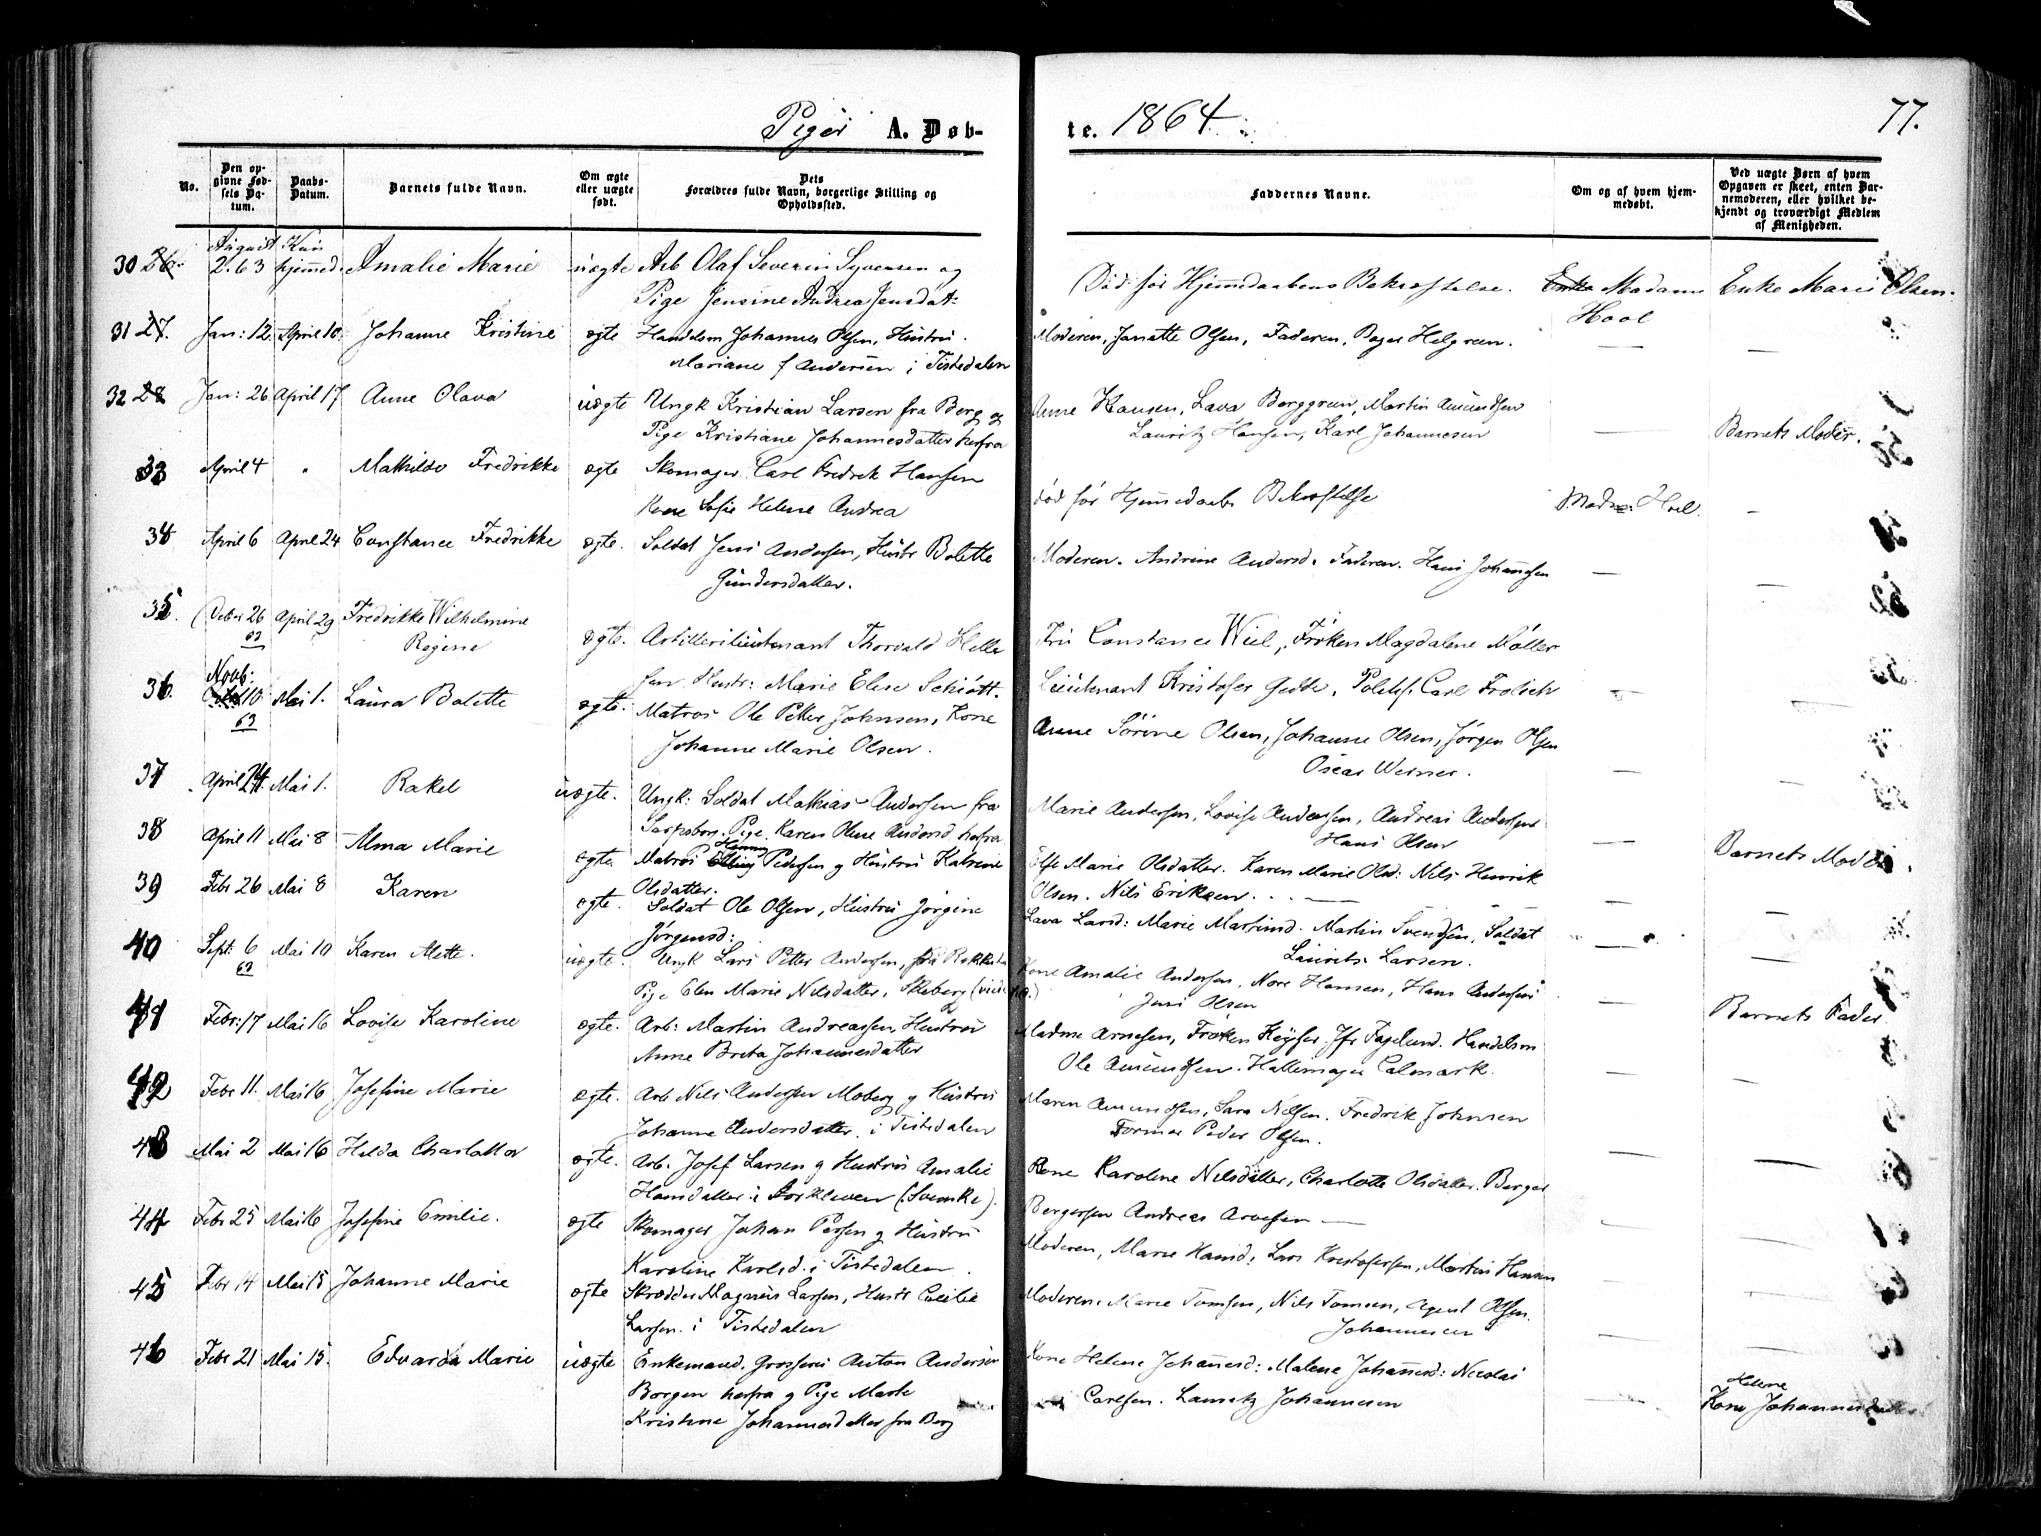 Piger A. Døb-
te. 1864
77.
No.
Den op-
givne Fød-
sels Da-
tum.
Daabs-
Datum.
Barnets fulde Navn.
Om ægte
eller uægte
født.
Dets
Forældres fulde Navn, borgerlige Stilling og
Opholdssted.
Faddernes Navne.
Om og af hvem hjem-
medøbt.
Ved uægte Børn af hvem
Opgaven er skeet, enten Bar-
nemoderen, eller hvilket be-
kjendt og troværdigt Medlem
af Menigheden.
30 26. August 2. 63 Kun hjemmed. Amalie Marie uægte Arb Olaf Severin Syversen og
Pige Jensine Andrea Jensdat:
Død før Hjemmdaabens Bekræftelse. Enke Madam Hool Enke Marie Olsen.
31 27. Jan: 12. April 10. Johanne Kristine ægte Handelsm Johannes Olsen, Hustru
Mariane f Andersen i Tistedalen
Moderen, Janatte Olsen, Faderen, Helgreen.
32 28 Jan: 26 April 17 Anne Olava uægte Ungk Kristian Larsen fra Berg og
Pige Kristiane Johannesdatter herfra
Anne Hansen, Lava Berggreen, Martin Amundsen
Lauritz Hansen, Karl Johannesen
Barnets Moder.
33 April 4 " Mathilde Fredrikke ægte Skomager Carl Fredrik Hansen
Kone Sofie Helene Andrea
død før Hjemmedaabs Bekræftelse Madm: Hool.
34 April 6 April 24 Constance Fredrikke ægte. Soldat Jens Andersen, Hustr Bolette
Gundersdatter.
Moderen. Andrine Andersd. Faderen. Hans Johannesen
35. Octber 26 63 April 29 Fredrikke Wilhelmine
Regine
ægte. Artillerilieutenant Thorvald Heller
Hustr: Marie Elise Schiøtt.
Fru Constance Wiel, Frøken Magdalene Møller
Lieutenant Kristofer Gedde, Carl Frolich
36. Novb: 10 63 Mai 1. Laura Bolette ægte. Matros Ole Petter Johnsen, Kone
Johanne Marie Olsen.
Anne Sørine Olsen, Johanne Olsen, Jørgen Olsen
Oscar Werner.
37 April 24. Mai 1. Rakel uægte. Ungk: Soldat Mathias Andersen fra
Sarpsborg. Pige Karen Oline Andersd herfra
Marie Andersen, Lovise Andersen, Andreas Andersen
Hans Olsen
Barnets Moder.
38 April 11 Mai 8 Alma Marie ægte. Matros Pedersen g Hustru Katrine
Olsdatter.
Else Marie Olsdatter. Karen Marie Olsd: Nils Henrik
Olsen. Nils Eriksen.
39 Febr 26 Mai 8 Karen ægte. Soldat Ole Olsen, Hustru Jørgine
Jørgensd:
Lava Larsd: Marie Martinsd. Martin Svendsen, Soldat
Laurits Larsen.
40 Sept: 6 63 Mai 10 Karen Mette. uægte. Ungk Lars Petter Andersen, fra
Pige Elen Marie Nilsdatter, Skeberg
Kone Amalie Andersen, Nora Hansen, Hans Andersen
Jens Olsen
Barnets Fader
41 Febr: 17 Mai 16 Lovise Karoline ægte. Arb: Martin Andreassen, Hustru
Anne Brita Johannesdatter
Madme Arnesen, Frøken Keyser. Jfr Fagelund. Handelsm
Ole Amundsen. Calmark.
42 Febr 11. Mai 16 Josefine Marie ægte. Arb Nils Andersen Moberg g Hustru
Johanne Andersdatter. i Tistedalen
Maren Amundsen, Sara Nilsen. Fredrik Johnsen
Former Peder Olsen.
43 Mai 2 Mai 16 Hilda Charlotte ægte. Arb. Josef Larsen g Hustru Amalie
Hansdatter i (Svenske).
Kone Karoline Nilsdatter, Charlotte Olsdatter. Berger
Bergersen Andreas Arvesen
44 Febr 25 Mai 16 Josefine Emilie. ægte Skomager Johan Persen g Hustru
Karoline Karlsd. i Tistedalen.
Moderen, Marie Hansd: Lars Kristofersen, Martin Hansen
45 Febr 14 Mai 15 Johanne Marie ægte Skrædder Magnus Larsen, Hustr Cecilie
Larsen. i Tistedalen
Moderen. Marie Tomsen, Nils Tomsen, Agent Olsen.
Johannesen
46 Febr 21 Mai 15. Edvarda Marie uægte Enkemand, Grosserer Anton Andersen
Borgen herfra g Pige Marte
Kristine Johannesdatter fra Berg
Kone Helene Johannesd: Malene Johannesd: Nicolai
Carlsen. Lauritz Johannesen
Helene
Kone Johannesdatter